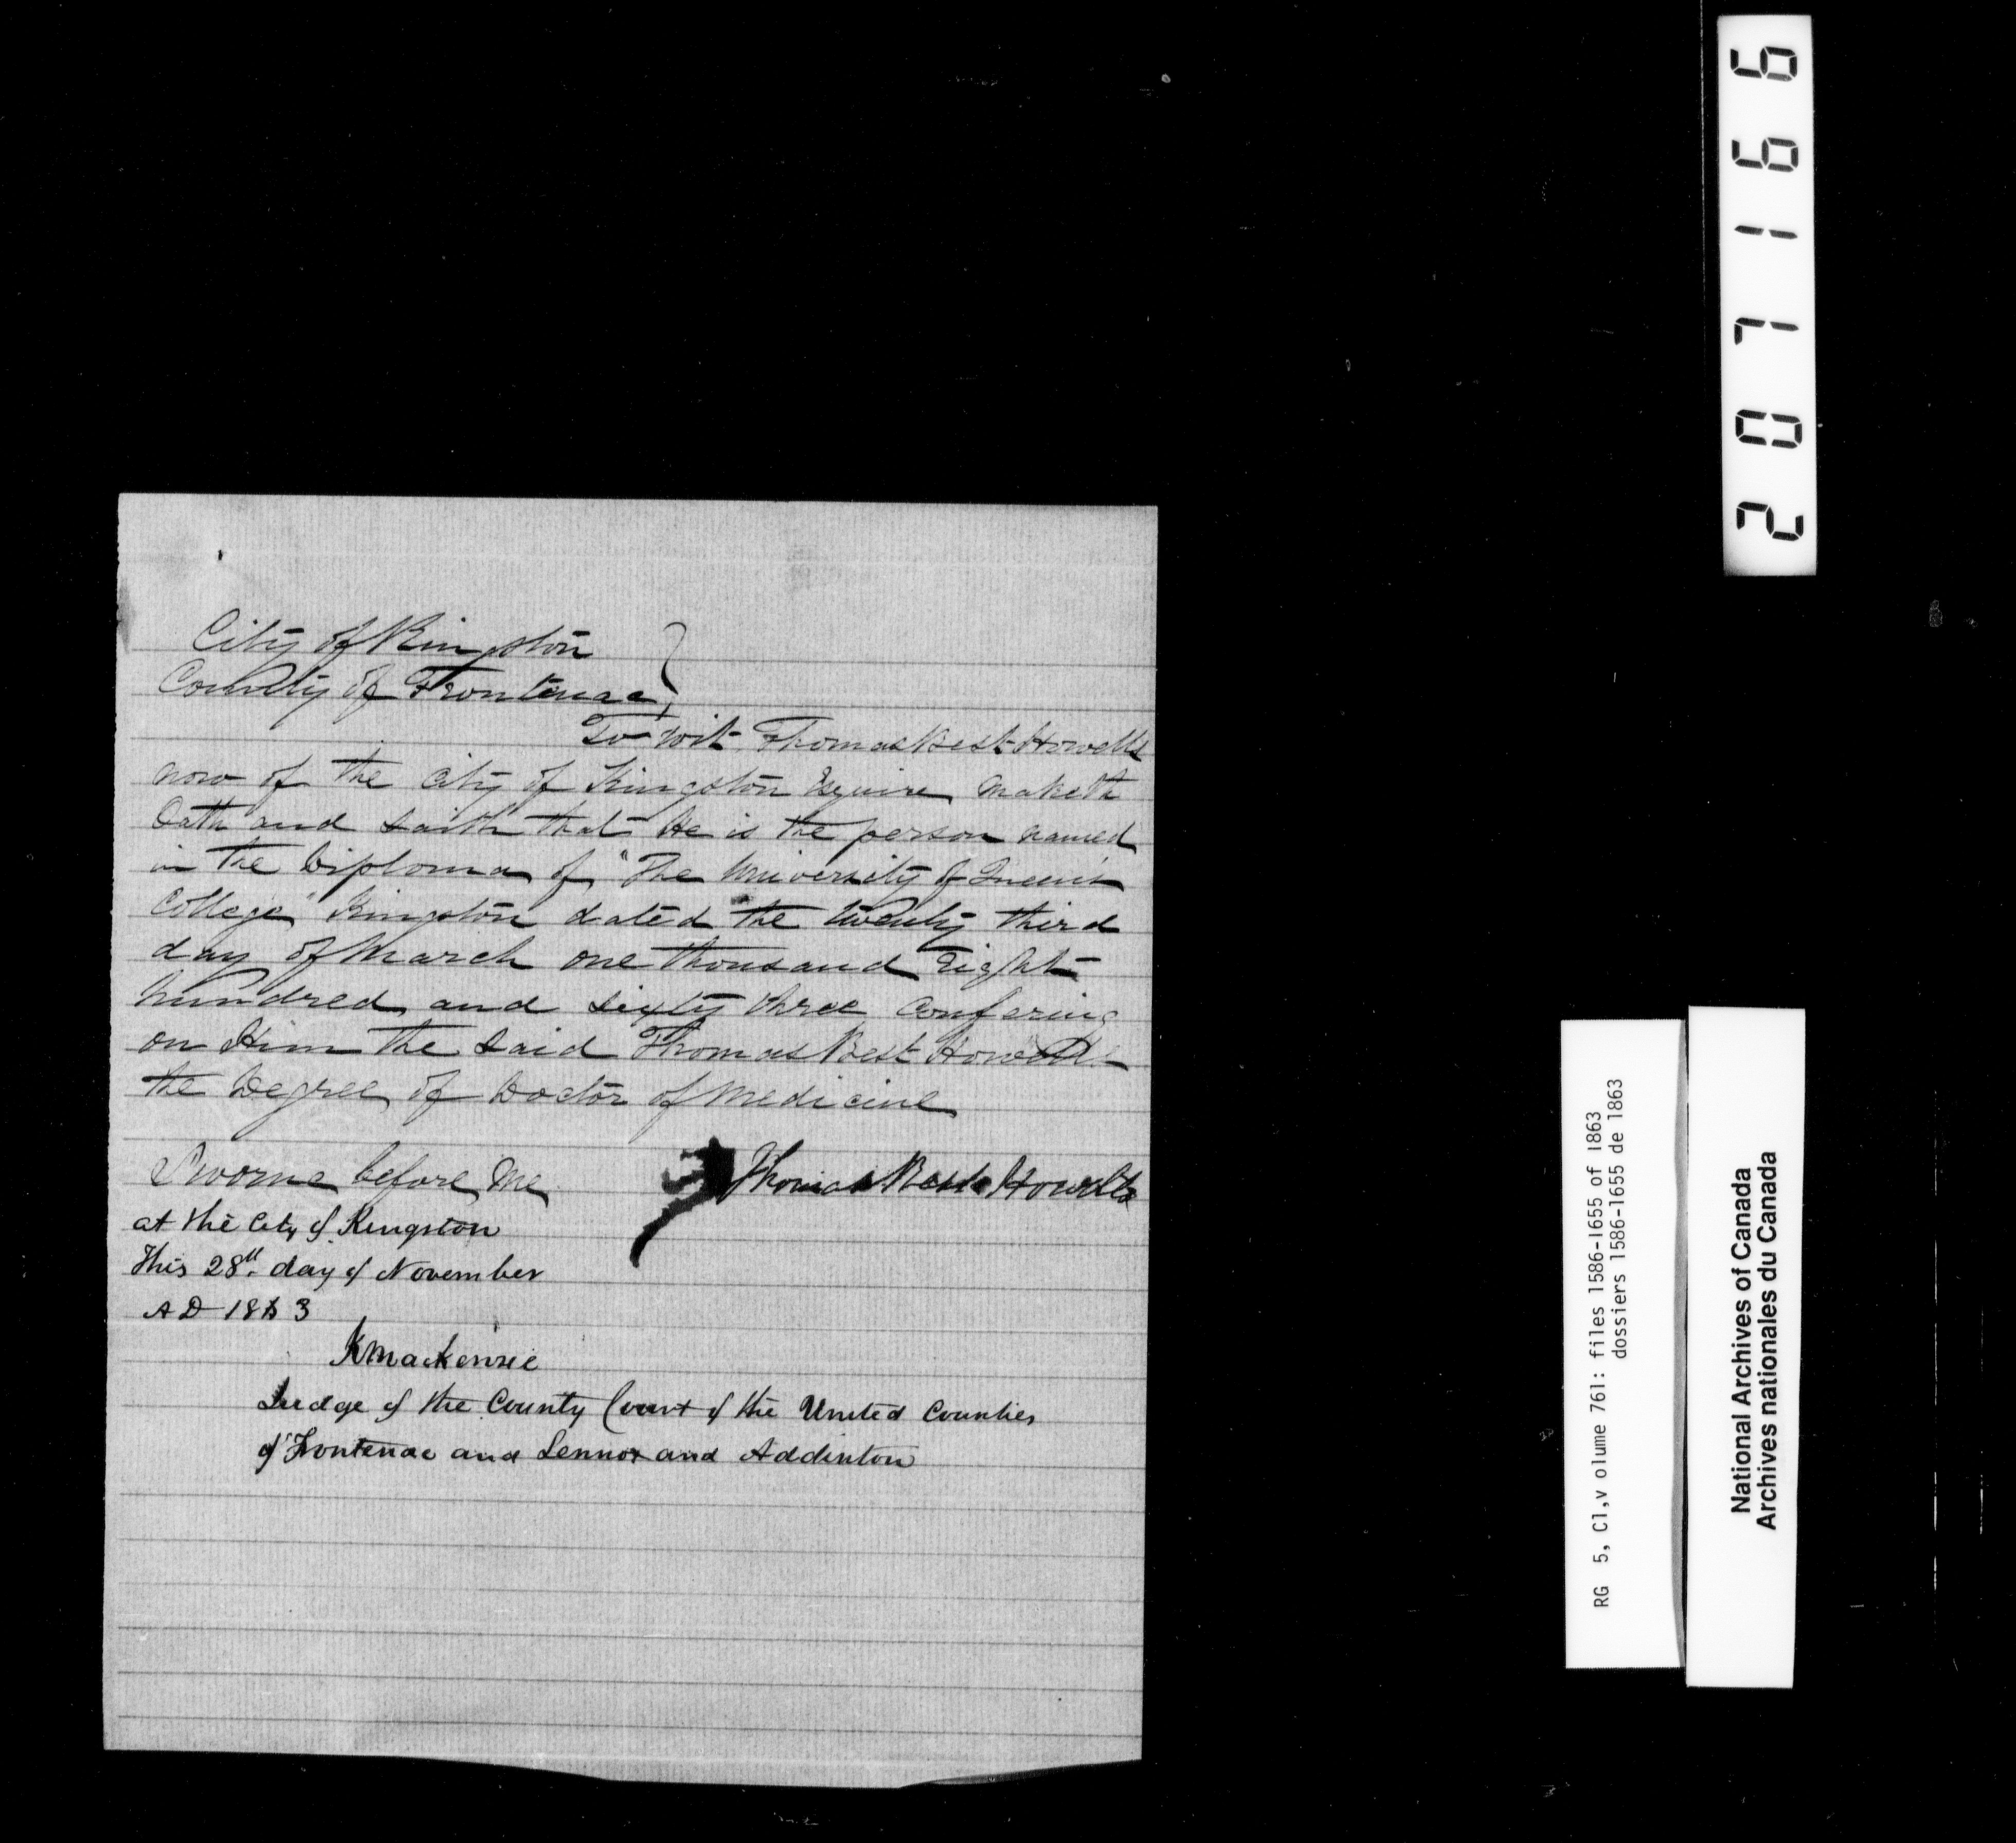 City of Kingston
County of Frontenac }
To wit Thomas Best Howells
now of the City of Kingston Esquire maketh
Oath and saith that He is the person named
in the Diploma of "The University of Queen's
College" Kingston dated the twenty third
day of March one thousand Eight
hundred and sixty three confering
on Him the said Thomas Best Howells
the Degree of Doctor of Medicine
Sworne before me
Thomas Best Howells
at the City of Kingston
This 28th day of November
AD 1863
K Mackenzie
Judge of the County Court of the United Counties
of Frontenac and Lennox and Addinton
207166
RG 5, C1,v olume 761: files 1586-1655 of 1863
dossiers 1586-1655 de 1863
National Archives of Canada
Archives nationales du Canada